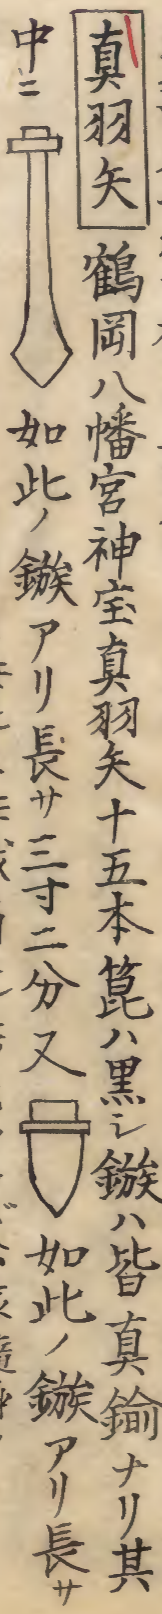 真羽矢 鶴岡八幡宮神宝真羽矢十五本箆ハ黒シ鏃ハ皆真鍮ナリ其
中ニ 如此ノ鏃アリ長サ三寸二分又 如此ノ鏃アリ長サ